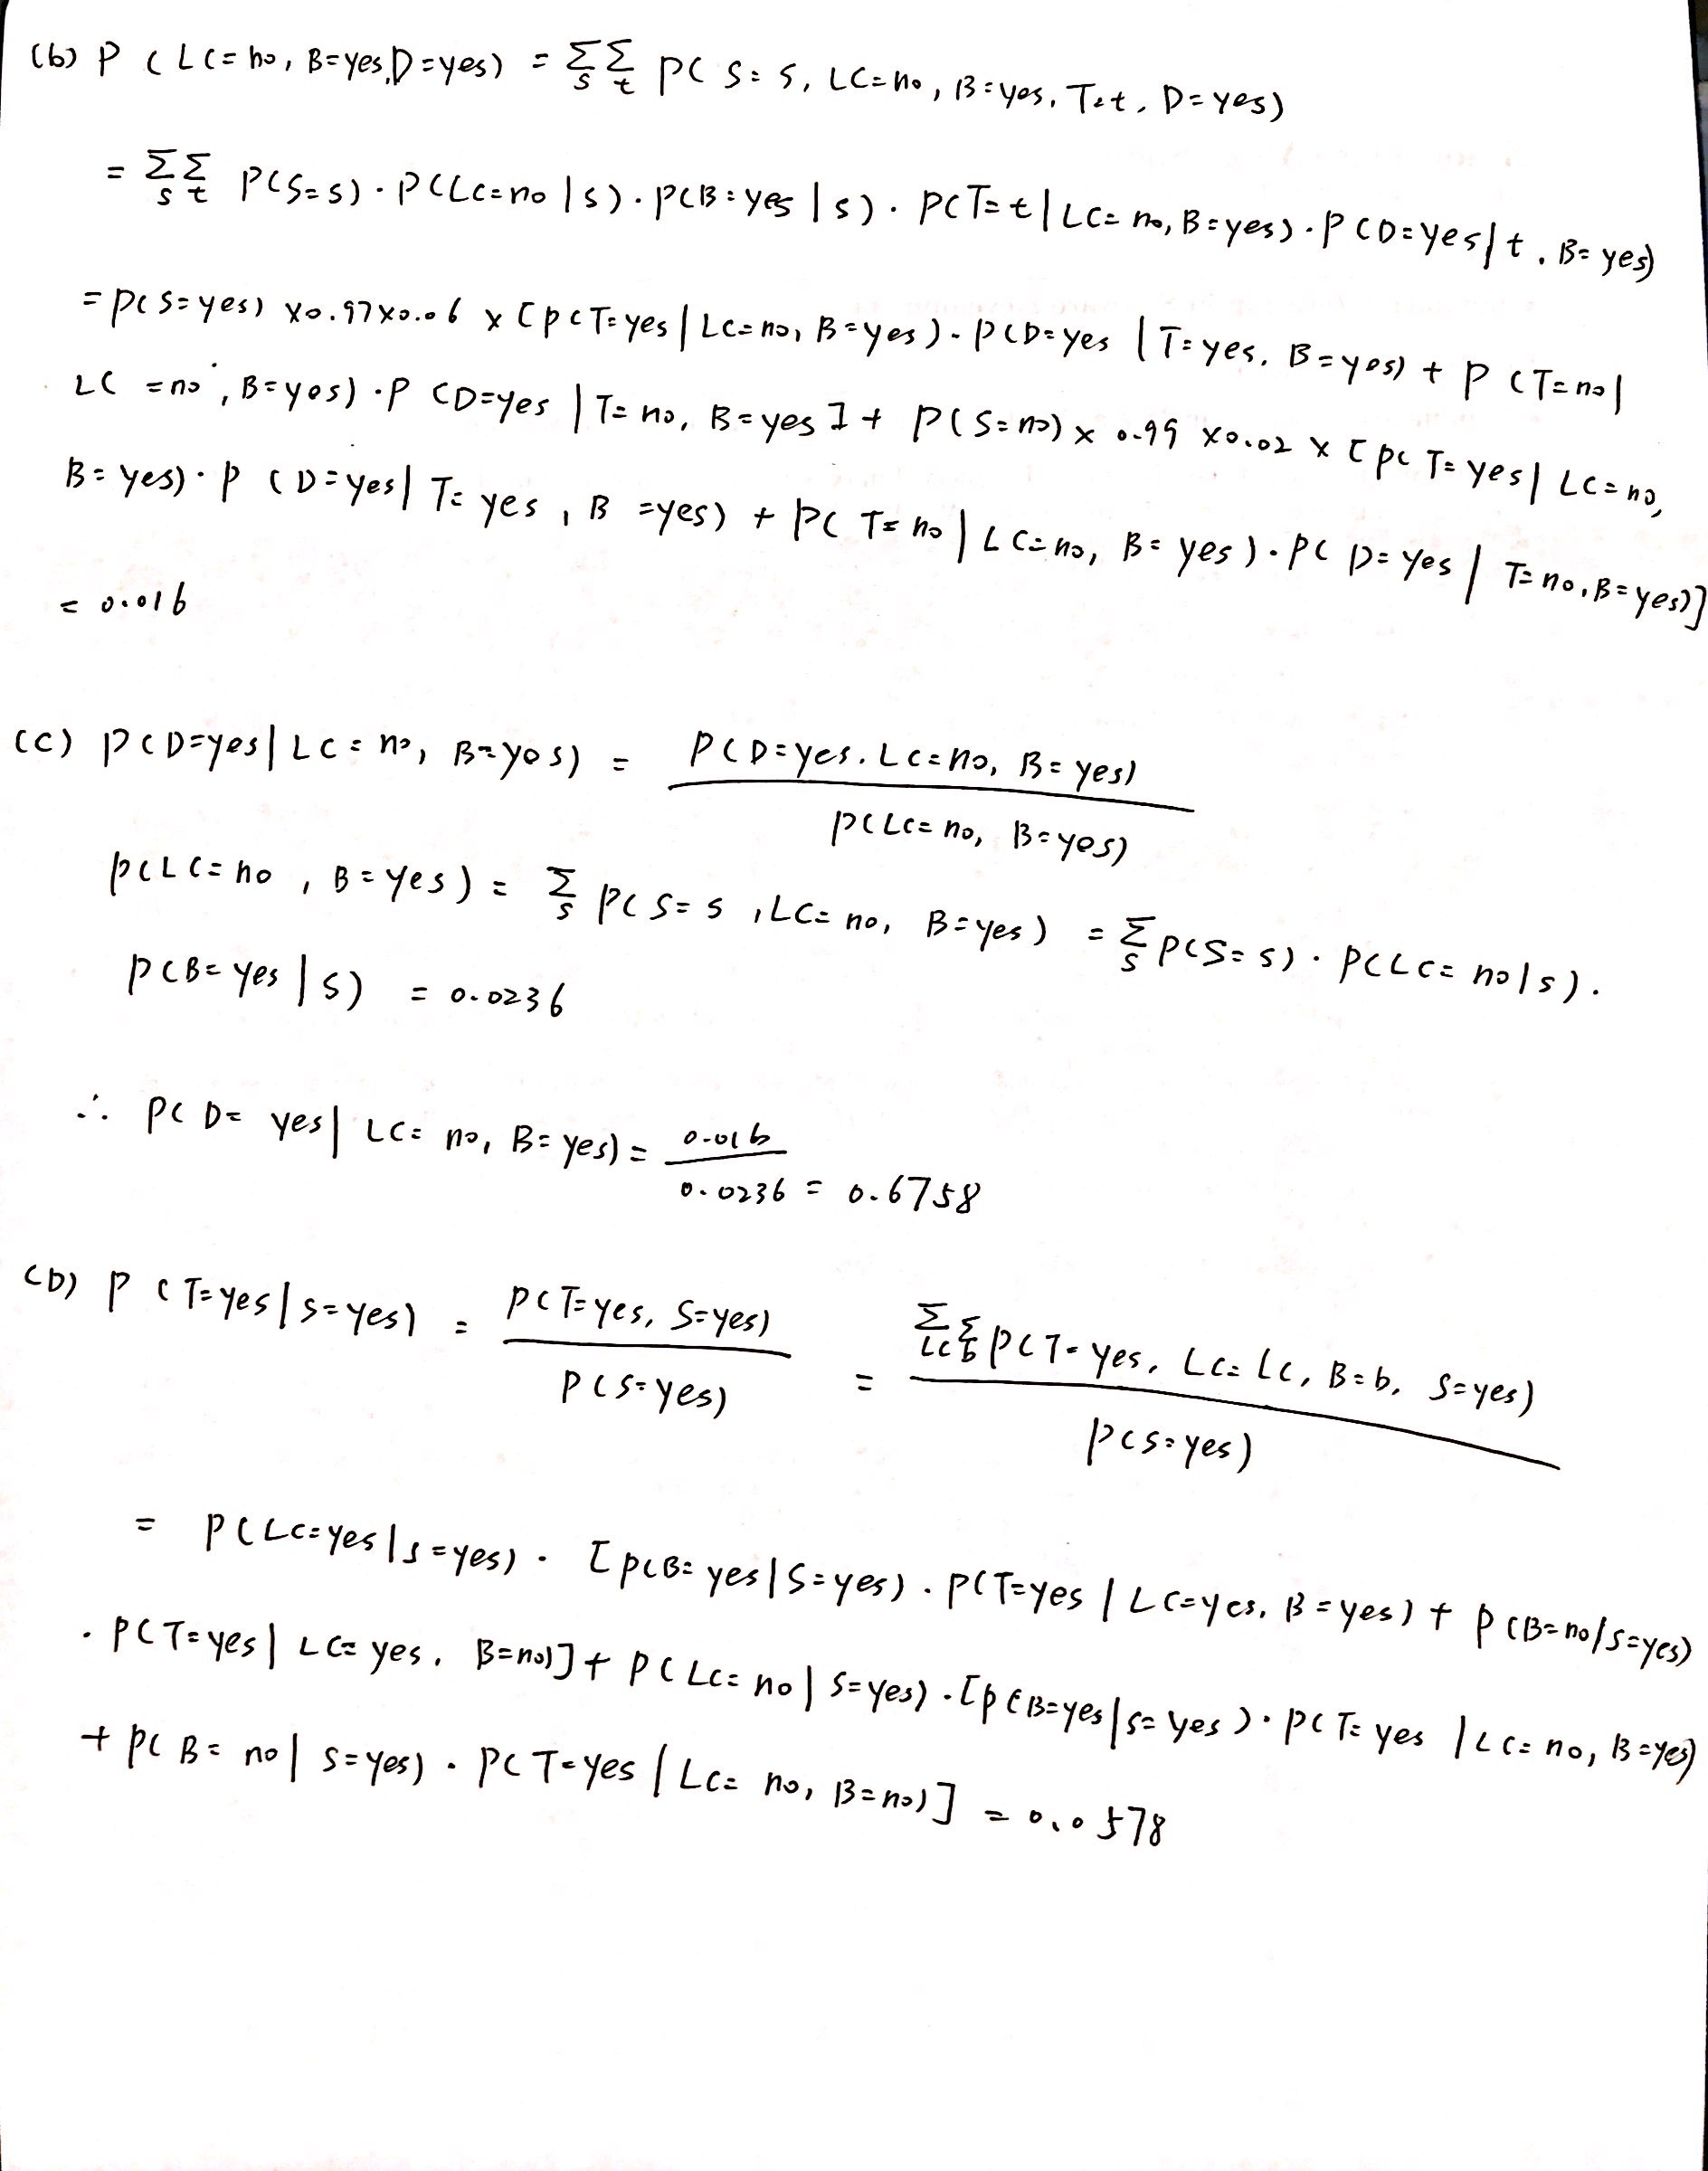 (b) P (LC=no, B=yes, D=yes) = Σ_s Σ_t P(S=s, LC=no, B=yes, T=t, D=yes)
= Σ_s Σ_t P(S=s)·P(LC=no|s)·P(B=yes|s)·P(T=t|LC=no, B=yes)·P(D=yes|t, B=yes)
= P(S=yes) ×0.97×0.06 × [P(T=yes|LC=no, B=yes)·P(D=yes|T=yes, B=yes) + P(T=no|
LC=no, B=yes)·P(D=yes|T=no, B=yes] + P(S=no) × 0.99 ×0.02 × [P(T=yes|LC=no,
B=yes)·P(D=yes|T=yes, B=yes) + P(T=no|LC=no, B=yes)·P(D=yes|T=no, B=yes)]
= 0.016
(c) P(D=yes|LC=no, B=yes) = P(D=yes, LC=no, B=yes)
P(LC=no, B=yes)
P(LC=no, B=yes) = Σ_s P(S=s, LC=no, B=yes) = Σ_s P(S=s)·P(LC=no|s)·
P(B=yes|s) = 0.0236
∴ P(D=yes|LC=no, B=yes) = 0.016
0.0236 = 0.6758
(D) P(T=yes|S=yes) = P(T=yes, S=yes) = Σ_LC Σ_b P(T=yes, LC=Lc, B=b, S=yes)
P(S=yes) P(S=yes)
= P(LC=yes|S=yes)·[P(B=yes|S=yes)·P(T=yes|LC=yes, B=yes) + P(B=no|S=yes)
·P(T=yes|LC=yes, B=no)] + P(LC=no|S=yes)·[P(B=yes|S=yes)·P(T=yes|LC=no, B=yes)
+ P(B=no|S=yes)·P(T=yes|LC=no, B=no)] = 0.0578